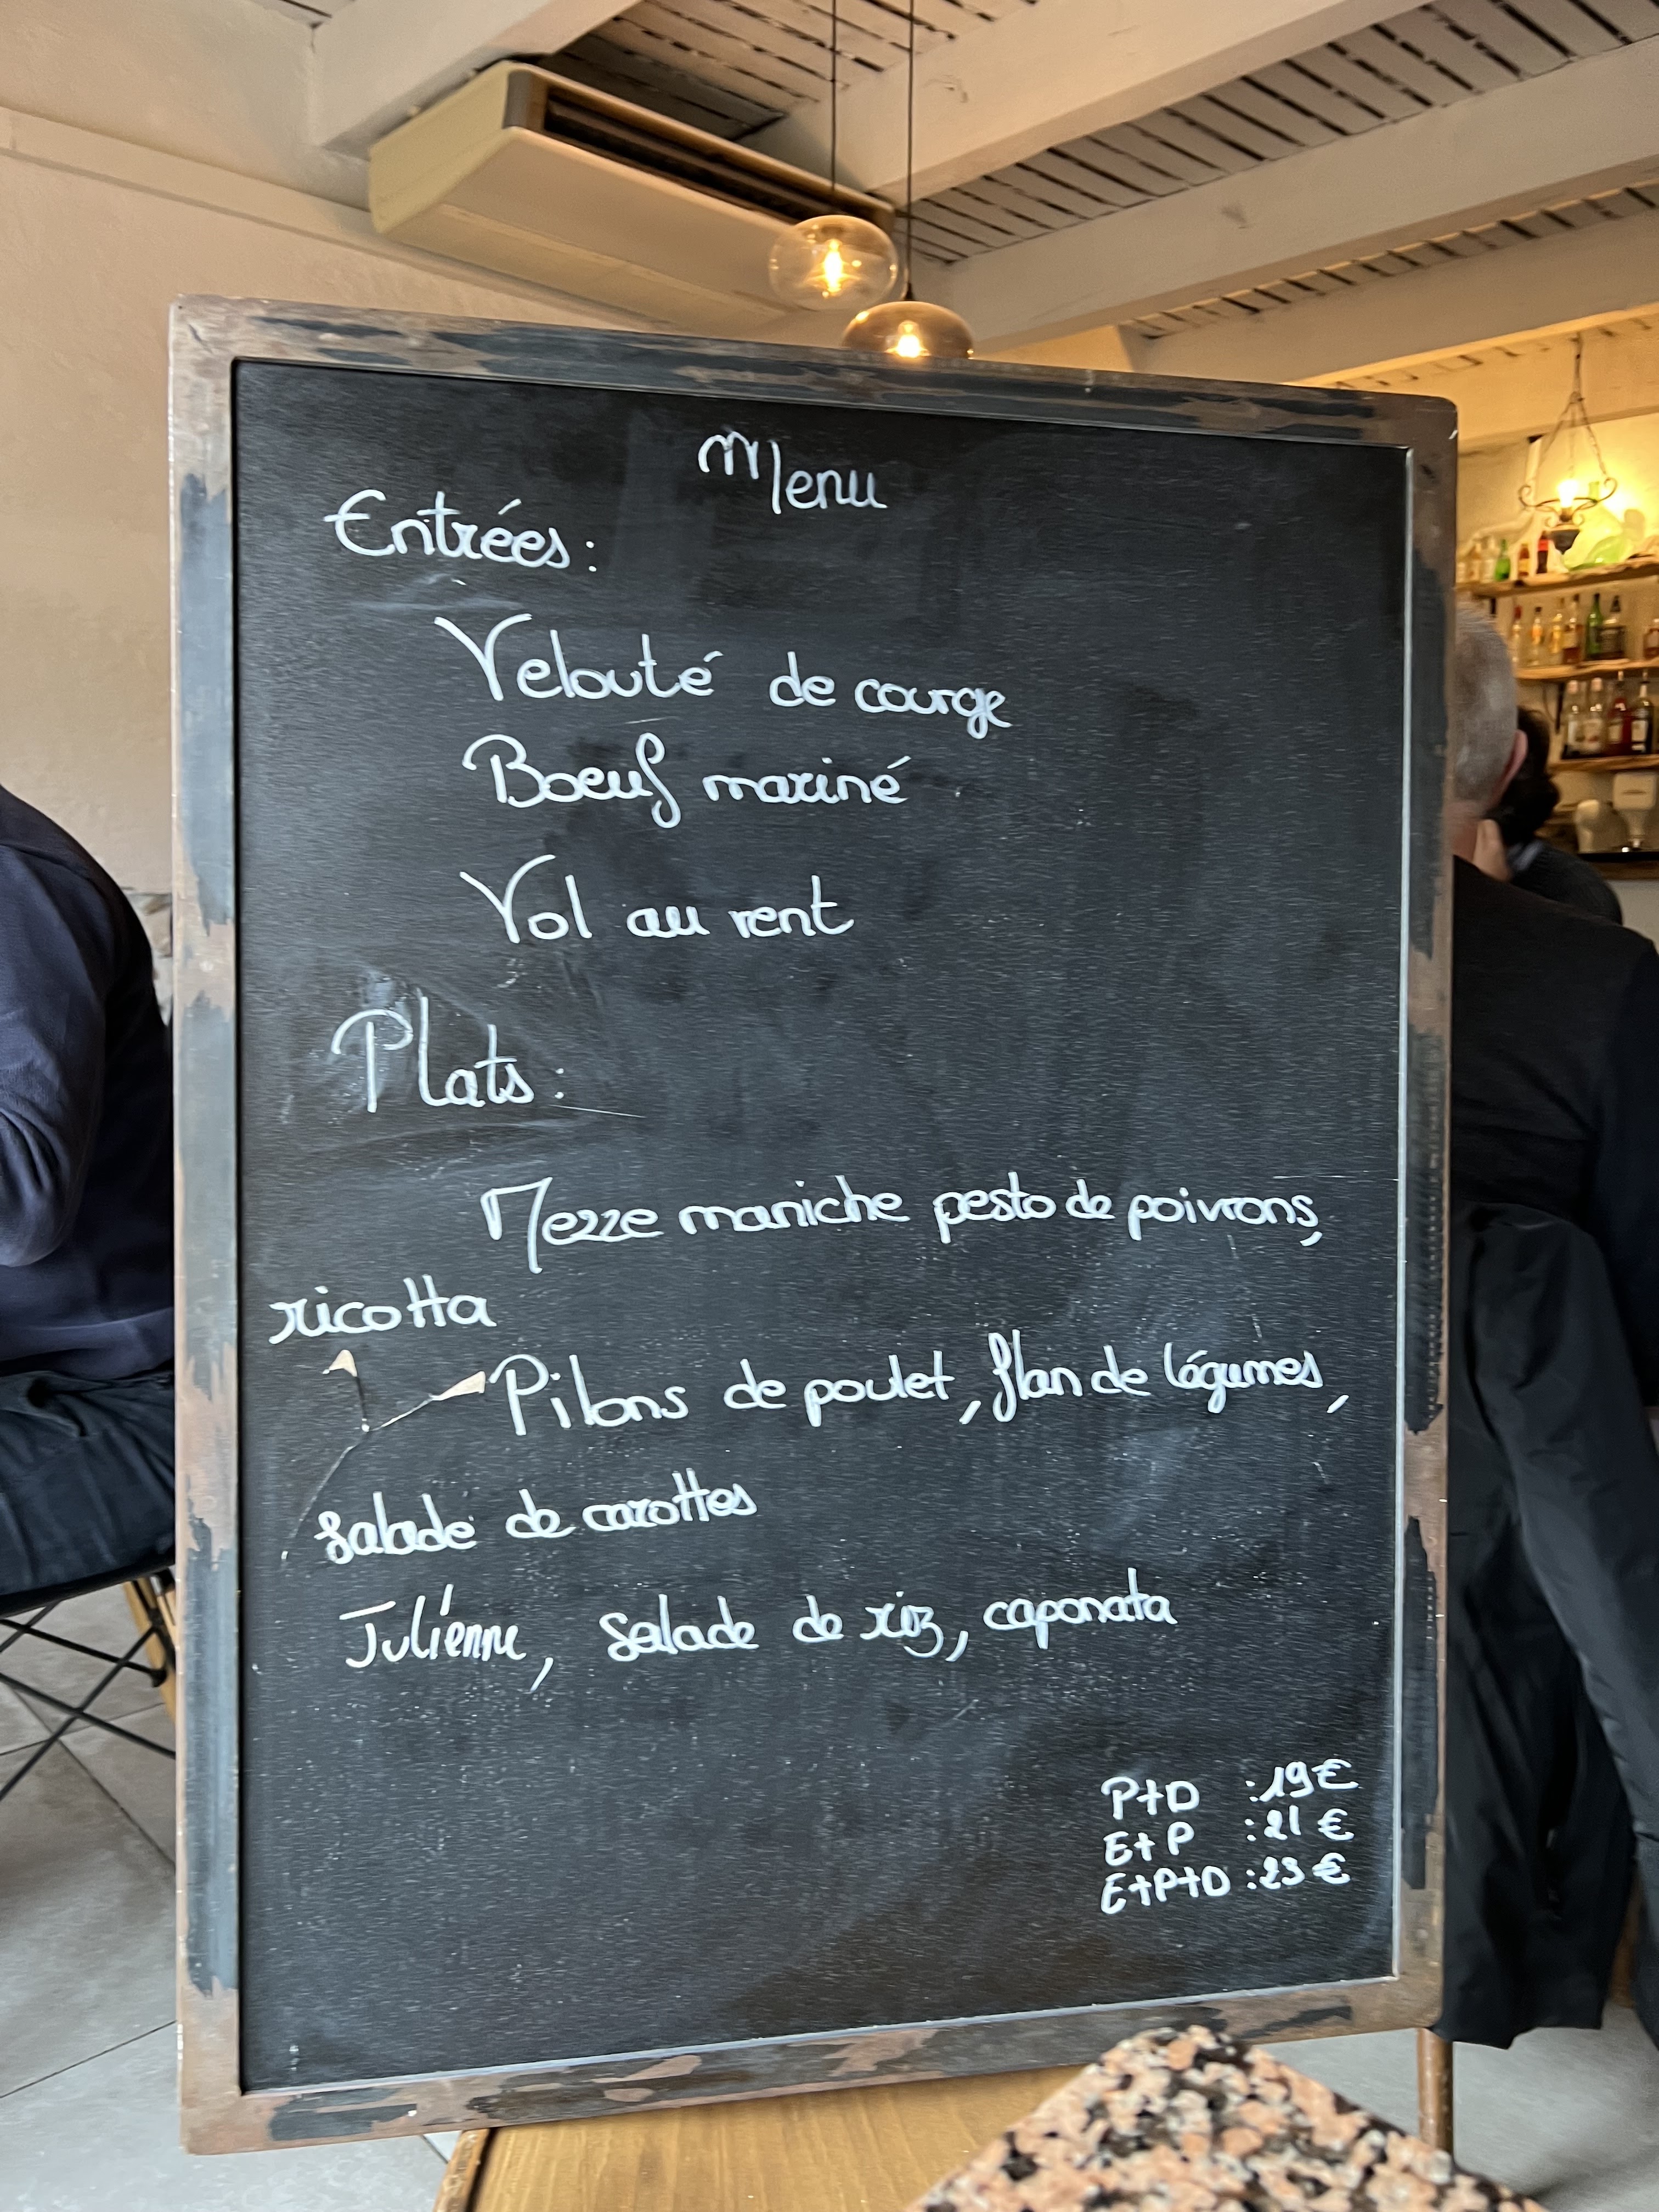 Menu
Entrées :
Velouté de courge
Boeuf mariné
Vol au vent
Plats :
Mezze maniche pesto de poivrons,
ricotta
Pilons de poulet, flan de légumes,
salade de carottes
Julienne, salade de riz, caponata
P+D : 19 €
E+P : 21 €
E+P+D : 23 €